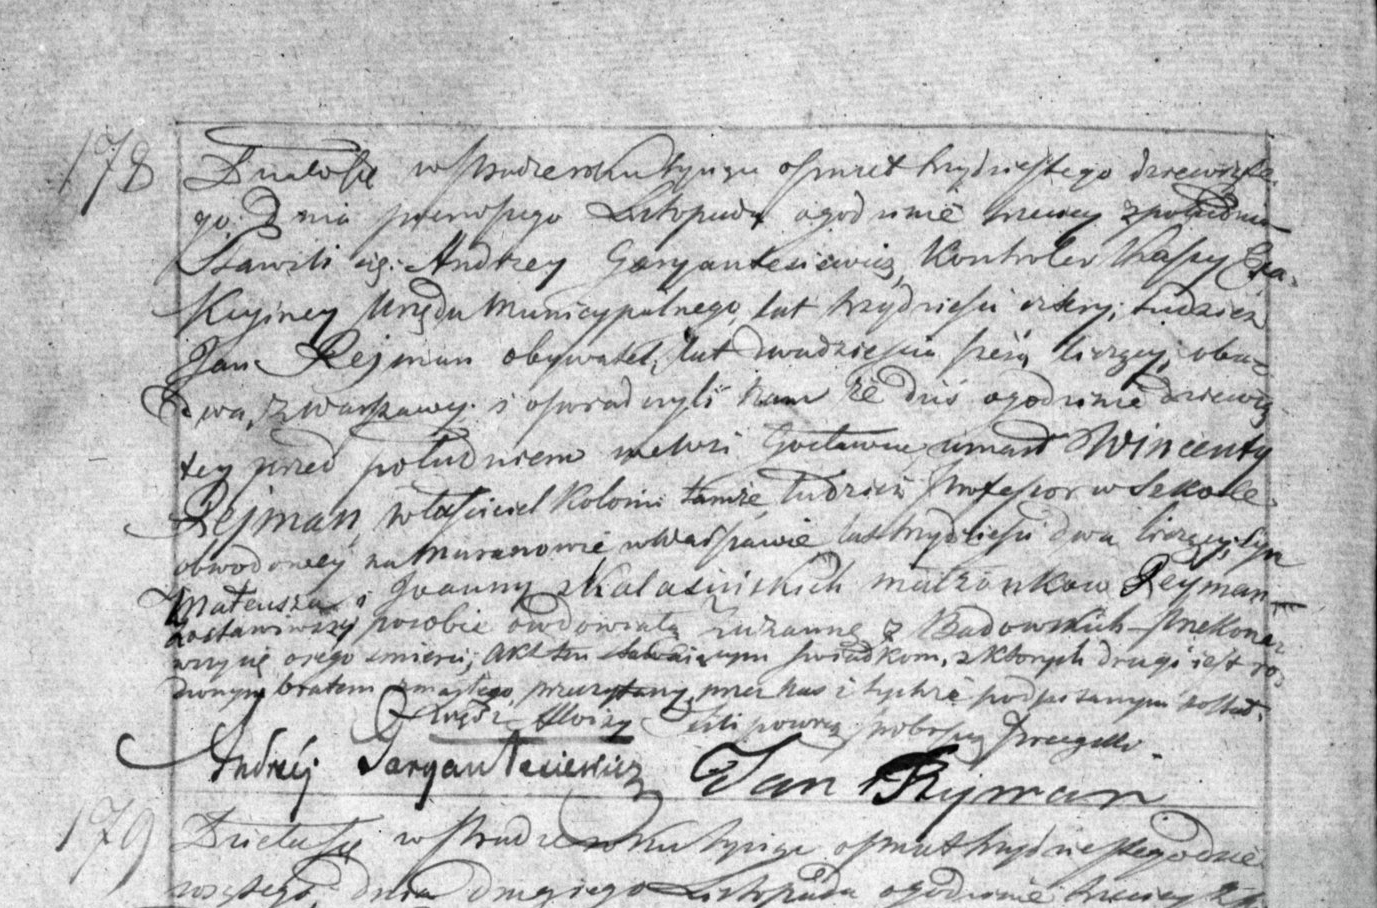 178
Działo się w Pradze roku tysiąc osmset trzydziestego dziewiąte-
go, Dnia pierwszego Listopada o godzinie trzeciey z południa
Stawili się: Andrzey Gargantesiewicz, Kontroler Kassy Exa-
kcyiney Urzędu Municypalnego, lat trzydzieści cztery, tudzież
Jan Rejman obywatel, lat dwadzieścia sześć liczący, oba-
dwa, z Warszawy i oświadczyli nam że dziś o godzinie dziewią
tey przed południem we Wsi Gocławiu, umarł Wincenty
Rejman, właściciel Kolonii tamże tudzież Professor w Szkole
obwodowey na Muranowie w Warszawie, lat trzydzieści dwa liczący, syn
Mateusza i Joanny z Kalasińskich małżonków Reyman
zostawiwszy po sobie owdowiałą Zuzannę z Badowskich Przekonaw
wszy się o jego śmierci, Akt ten stawaiącym świadkom, z których drugi iest ro
dzonym bratem zmarłego, przeczytany, przez nas i tychże podpisanym został.
Andrzéj Gargantesiewicz Jan Rejman
179
Działo się w Pradze roku tysiąc osmset trzydziestego dzie
wiątego, dnia drugiego Listopada o godzinie trzeciey